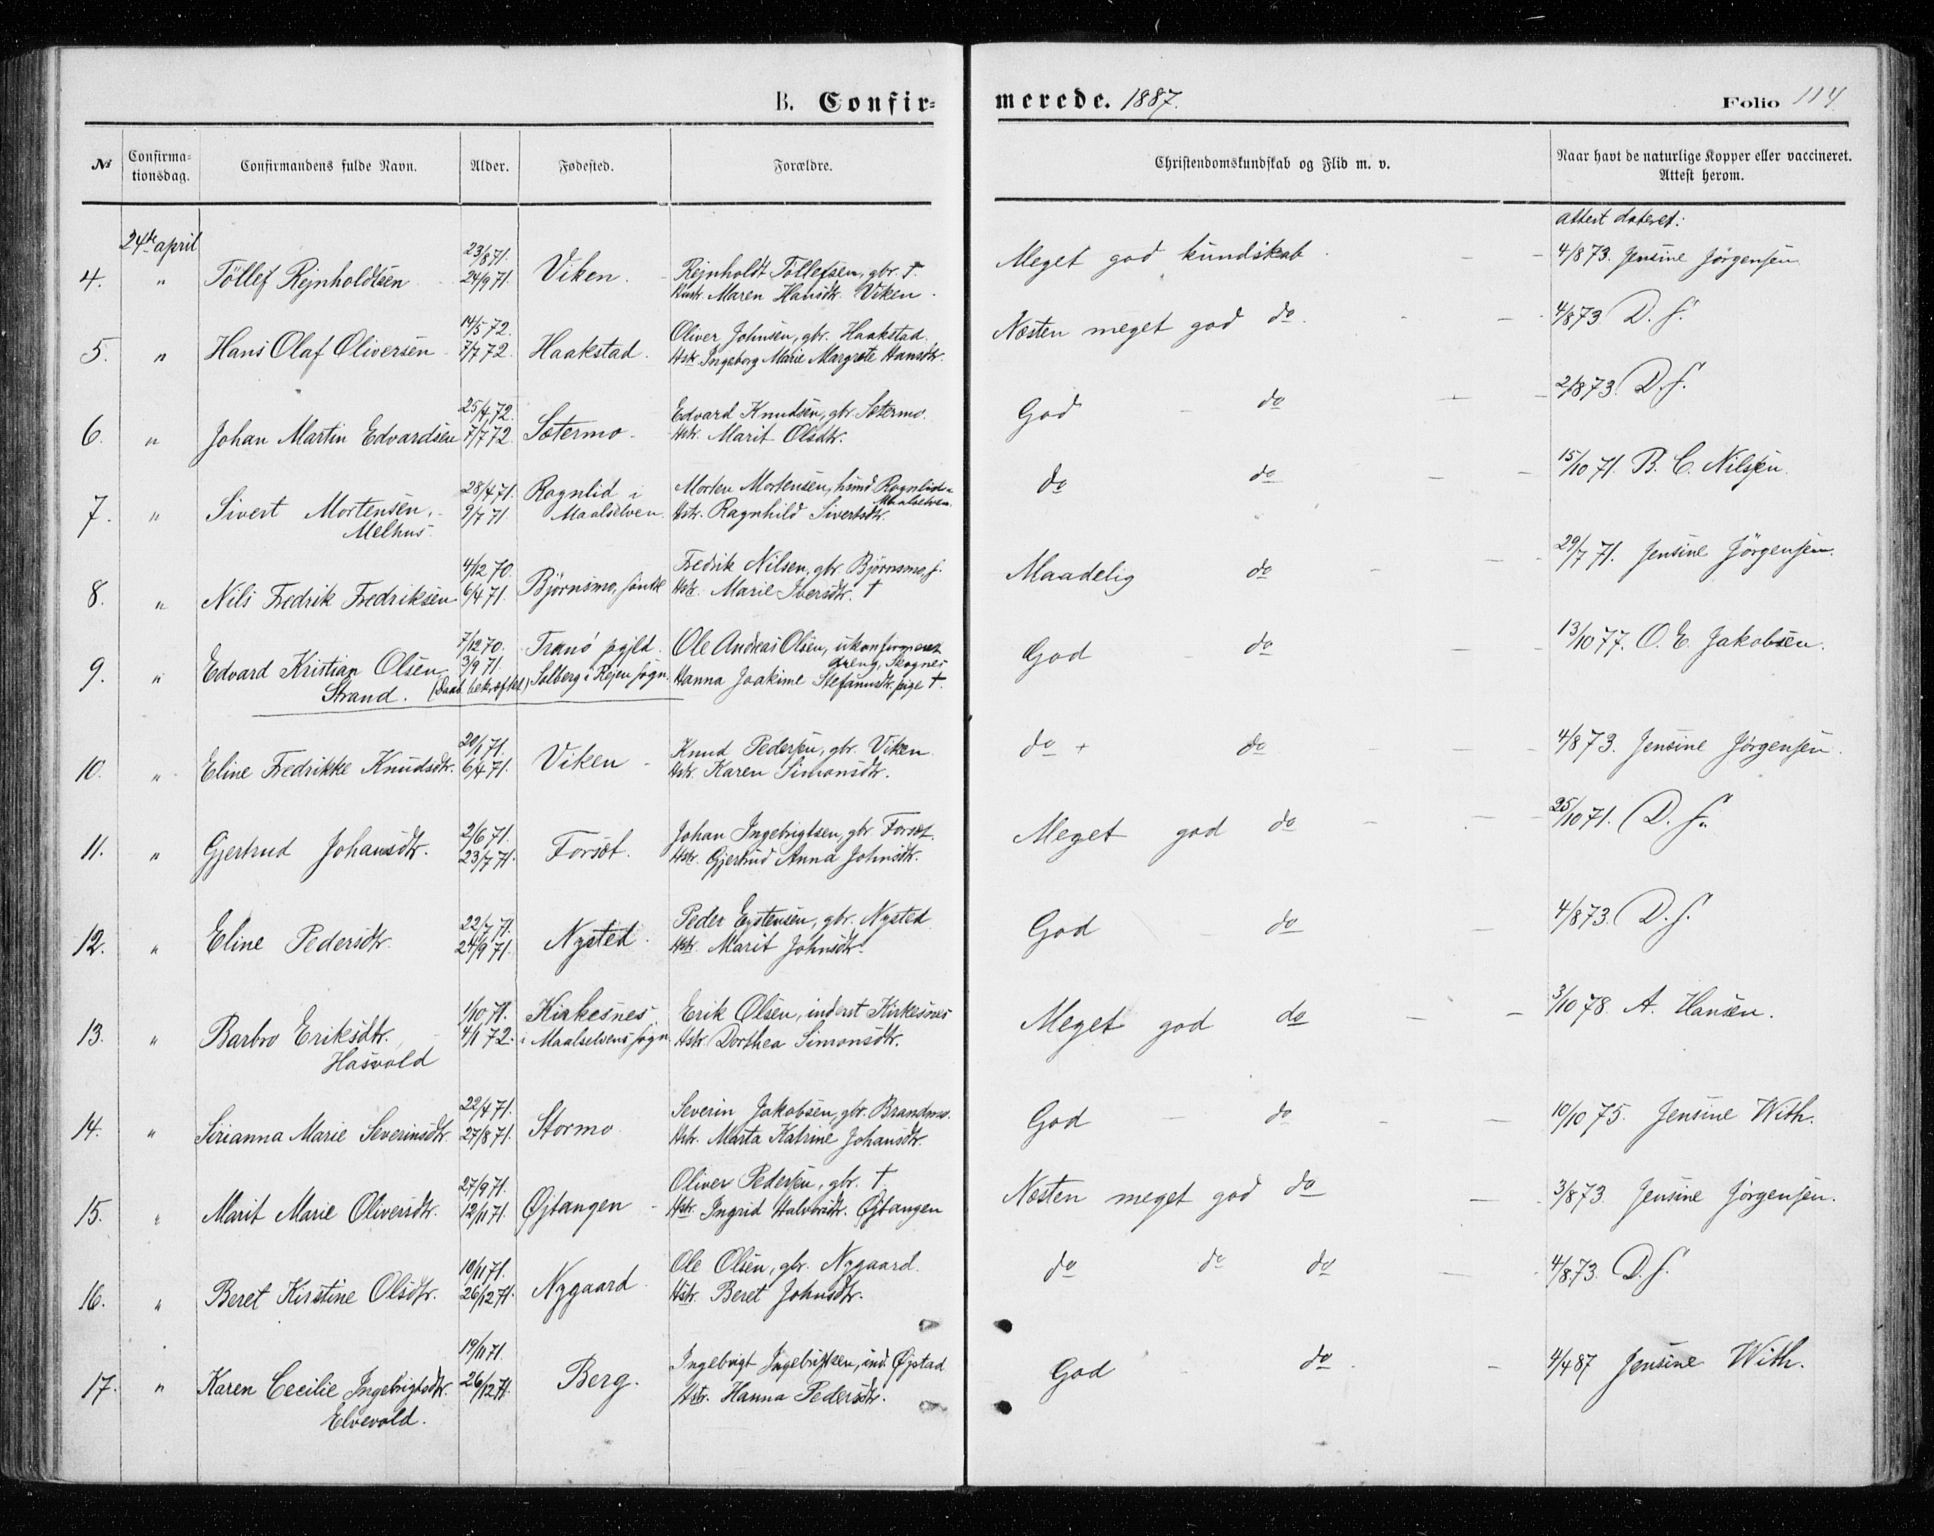 B. Confir= merede. 1887. Folio 114.
№ Confirma=tionsdag. Confirmandens fulde Navn. Alder. Fødested. Forældre. Christendomskundskab og Flid m. v. Naar havt de naturlige Kopper eller vaccineret. Attest herom.
24de april attest dateret:
23/8 71. Rejnholdt Töllefsen, gbr. †. Meget god kundskab 4/8 73. Jensine Jørgensen
4. " Töllef Rejnholdtsen 24/9 71. Viken. Hustr. Maren Hansdtr. Viken.
14/5 72. Oliver Johnsen, gbr. Haakstad. Næsten meget god do 4/8 73 D. S.
5. " Hans Olaf Oliversen 7/7 72. Haakstad. Hstr. Ingeborg Marie Margrete Hansdtr.
25/4 72. Edvard Knudsen, gbr. Sætermo. God do 2/8 73. D. S.
6. " Johan Martin Edvardsen 7/7 72. Sætermo. Hstr. Marit Olsdtr.
28/4 71. Rognlid i Morten Mortensen, hsmd Rognlid i do do 15/10 71. B. C. Nilsen.
7. " Sivert Mortensen, 9/7 71. Maalselven. Hstr. Ragnhild Sivertsdtr. Maalselven.
Melhus.
4/12 70. Fredrik Nilsen, gbr. Björnsmo, f. Maadelig do 29/7 71. Jensine Jørgensen.
8. " Nils Fredrik Fredriksen 6/4 71. Björnsmo, Hstr. Marie Ibersdtr. †
7/12 70. Tranö pgjld. Ole Andreas Olsen, ukonfirmeret God do 13/10 77. O. E. Jakobsen.
9. " Edvard Kristian Olsen 3/9 71. Solberg i Rejen sogn. dreng, Skognes
Strand. (Daab bekræftet) Hanna Joakime Stefanusdtr. pige †.
20/1 71. Knud Pedersen, gbr. Viken do + do 4/8 73. Jensine Jørgensen.
10. " Eline Fredrikke Knudsdtr. 6/4 71. Viken Hstr. Karen Simonsdtr.
2/6 71. Johan Ingebrigtsen, gbr. Forset. Meget god do 25/10 71. D. S.
11. " Gjertrud Johansdtr. 23/7 71. Forset. Hstr. Gjertrud Anna Johnsdtr.
22/7 71. Peder Eystensen, gbr. Nysted God do 4/8 73. D. S.
12. " Eline Pedersdtr. 24/9 71. Nysted. Hstr. Marit Johnsdtr.
1/10 71. Kirkesnes Erik Olsen, inderst Kirkesnes Meget god do 3/10 78. A. Hansen.
13. " Barbro Eriksdtr. 4/1 72. i Maalselvens sogn Hstr. Dorthea Simonsdtr.
Hasvold
22/4 71. Severin Jakobsen, gbr. Brandmo. God do 10/10 75. Jensine With.
14. " Sirianna Marie Severinsdtr. 27/8 71. Stormo Hstr. Marta Katrine Johansdtr.
27/9 71. Oliver Pedersen, gbr. † Næsten meget god do 3/8 73. Jensine Jørgensen.
15. " Marit Marie Oliversdtr. 12/11 71. Øjtangen Hstr. Ingrid Halvorsdtr. Øjtangen
10/11 71. Ole Olsen, gbr. Nygaard. do do do 4/8 73. D. S.
16. " Beret Kirstine Olsdtr. 26/12 71. Nygaard Hstr. Beret Johnsdtr.
19/11 71. Ingebrigt Ingebrigtsen, ind. Øjstad God do 4/4 87 Jensine With.
17. " Karen Cecilie Ingebrigtsdtr. 26/12 71. Berg. Hstr. Hanna Pedersdtr.
Elvevold.